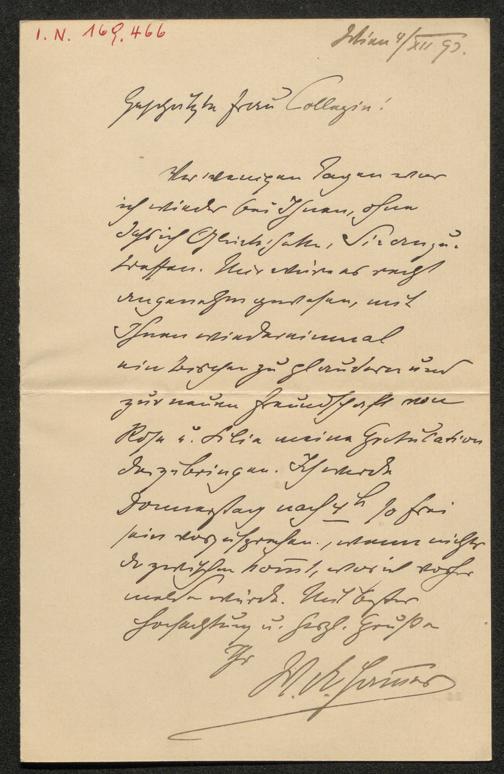 I. N. 169.466
Wien 4/XII 93.
Geschätzte Frau Collegin!
Vor wenigen Tagen war
ich wieder bei Ihnen, ohne
daß ich Glück hatte, Sie anzu-
treffen. Mir wäre es recht
angenehm gewesen, mit
Ihnen wieder einmal
ein bischen zu plaudern und
zur neuen Freundschaft von
Rosa u. Lilia meine Gratulation
darzubringen. Ich werde
Donnerstag nach 4h so frei
sein vorzusprechen, wenn nichts
dazwischen kommt, was ich vorher
melden würde. Mit bester
Hochachtung u. herzl. Grüße
Ihr